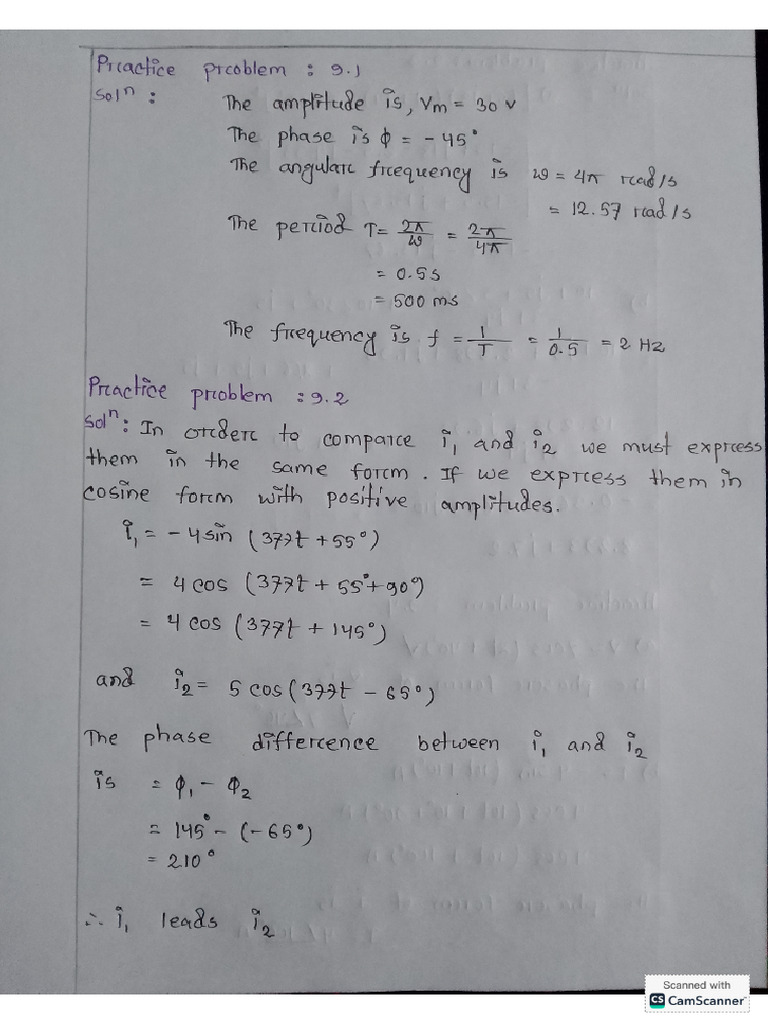 Practice problem : 9.1
Solⁿ : The amplitude is, Vm = 30 v
The phase is ϕ = - 45°
The angular frequency is ω = 4π rad/s
= 12.57 rad/s
The period T = 2π/ω = 2π/4π
= 0.5s
= 500 ms
The frequency is f = 1/T = 1/0.5 = 2 Hz
Practice problem : 9.2
Solⁿ : In order to compare i₁ and i₂ we must express
them in the same form. If we express them in
cosine form with positive amplitudes.
i₁ = - 4 sin (377t + 55°)
= 4 cos (377t + 55° + 90°)
= 4 cos (377t + 145°)
and i₂ = 5 cos (377t - 65°)
The phase difference between i₁ and i₂
is = ϕ₁ - ϕ₂
= 145° - (-65°)
= 210°
∴ i₁ leads i₂
Scanned with
CS CamScanner